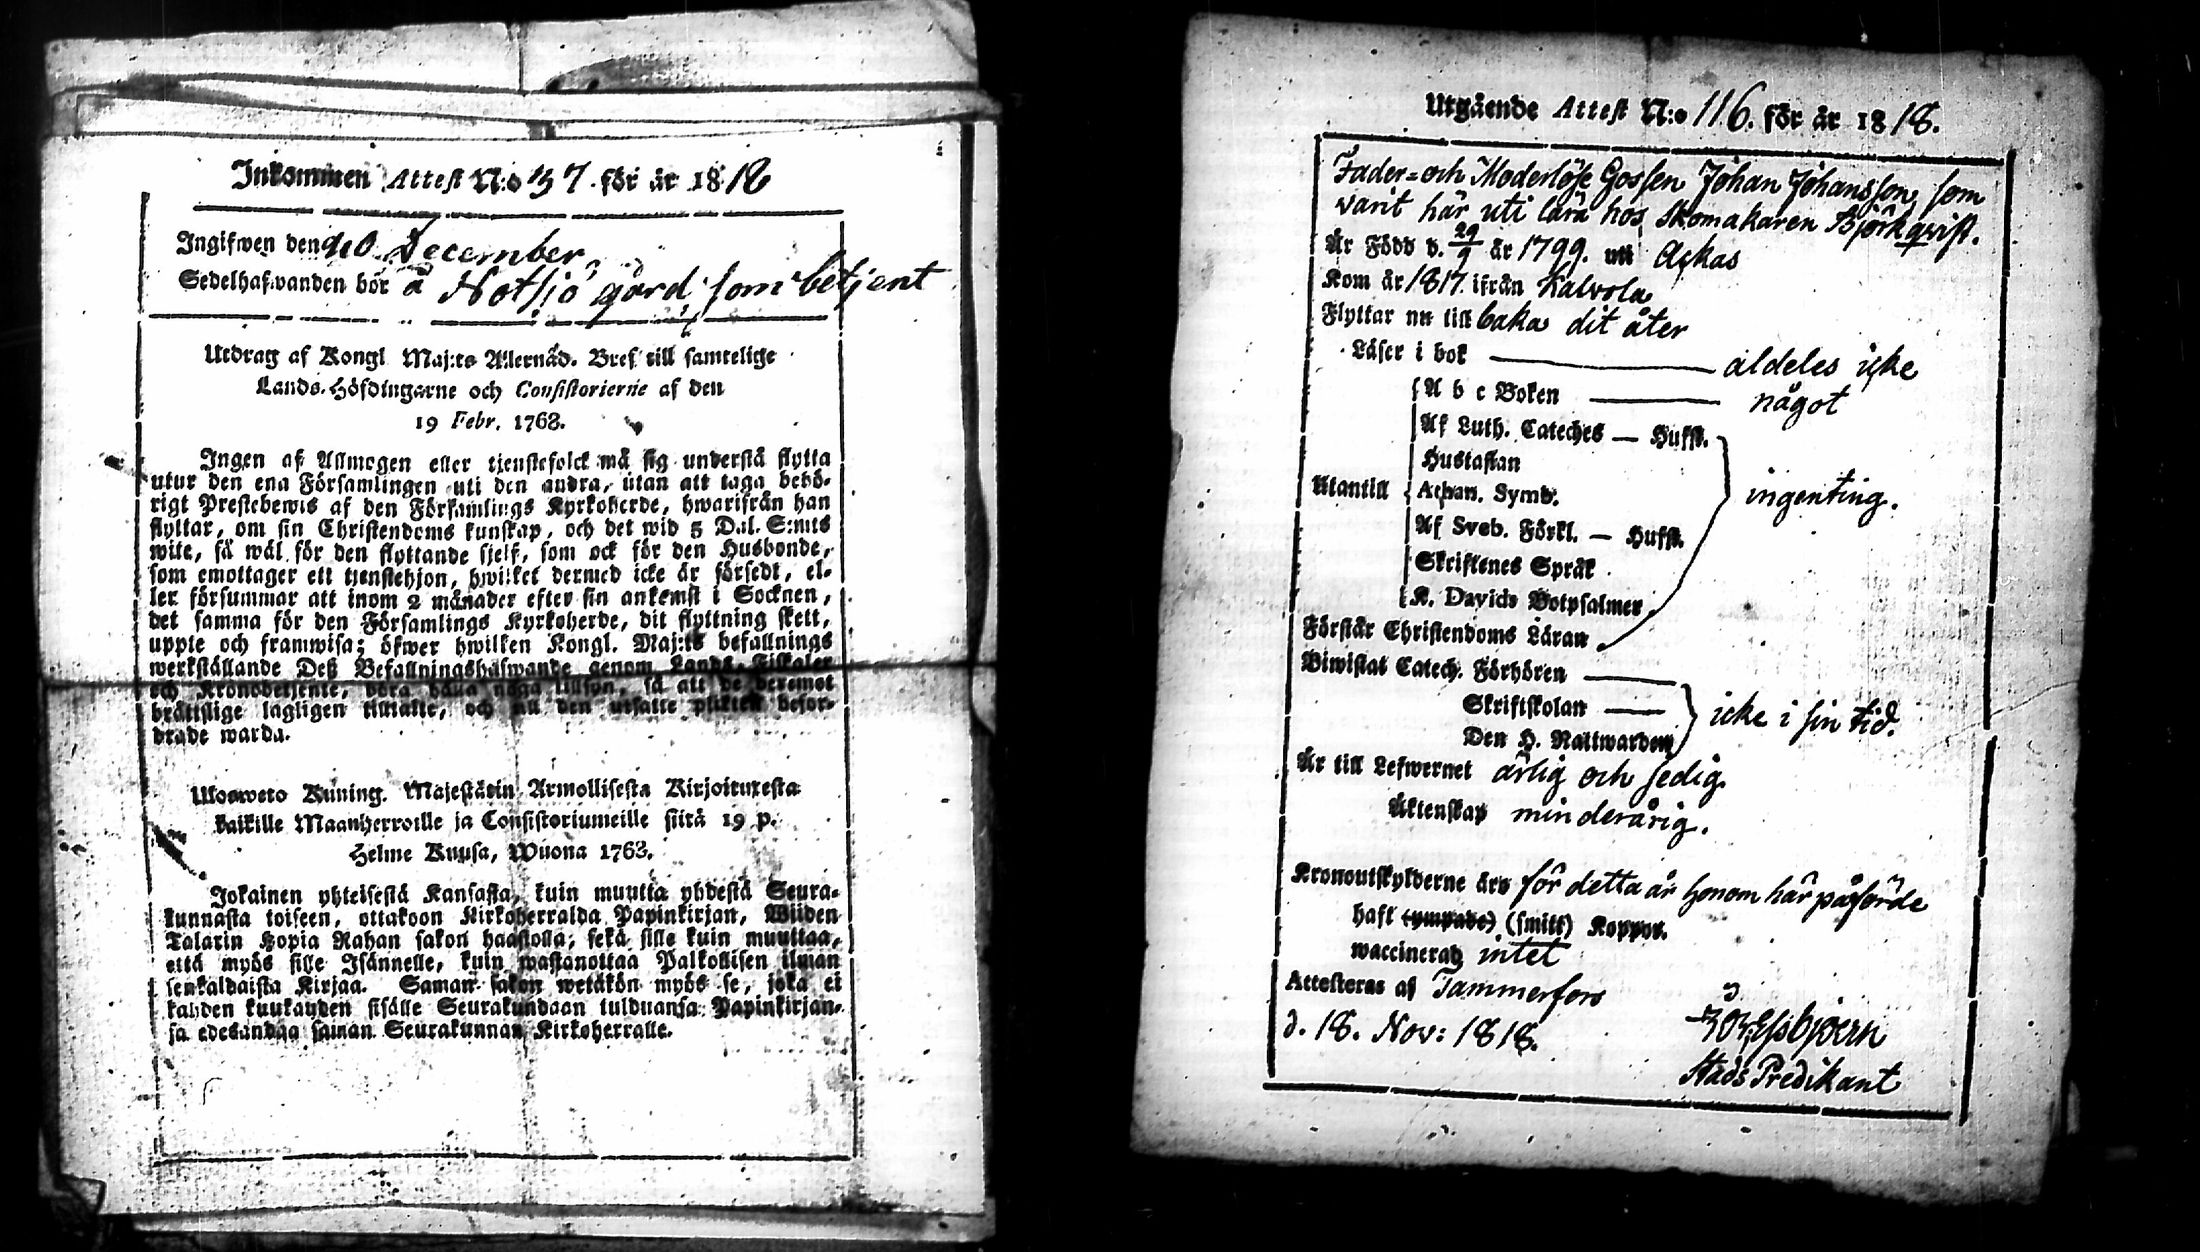 Inkommen Attest N:o 37. för år 1818
Ingifwen den 10 December
Sedelhafwanden bor å Notsjö gård som betjent
Utdrag af Kongl. Maj:ts Allernåd. Bref till samtelige
Lands-Höfdingarne och Consistorierne af den
19 Febr. 1763.
Ingen af Allmogen eller tjenstefolck må sig understå flytta
utur den ena Församlingen uti den andra, utan att taga behö-
rigt Prestebewis af den Församlings Kyrkoherde, hwarifrån han
flyttar, om sin Christendoms kunskap, och det wid 5 Dal. S:mts
wite, så wäl för den flyttande sjelf, som ock för den Husbonde,
som emottager ett tjenstehjon, hwilket dermed icke är försedt, el-
ler försummar att inom 2 månader efter sin ankomst i Socknen,
det samma för den Församlings Kyrkoherde, dit flyttning skett,
uppte och framwisa; öfwer hwilken Kongl. Maj:ts befallnings
werkställande Deß Befallningshafwande genom Lands-Fiskaler
och Kronobetjente, böra hålla noga tillsyn, så att de deremot
brättslige lagligen tilltalte, och till den utsatte plikten befor-
drade warda.
Ulosweto Kuning. Majestätin Armollisesta Kirjoituxesta
kaikille Maanherroille ja Consistoriumeille siitä 19 p.
Helme Kuusa, Wuona 1763.
Jokainen yhteisestä Kansasta, kuin muutta yhdestä Seura-
kunnasta toiseen, ottakoon Kirkoherralda Papinkirjan, Wiiden
Talarin Hopia Rahan sakon haastolla; sekä sille kuin muuttaa,
että myös sille Isännelle, kuin wastanottaa Palkollisen ilman
senkaldaista Kirjaa. Saman sakon wetäkön myös se, joka ei
kahden kuukauden sisälle Seurakundaan tulduansa Papinkirjan-
sa edesandaa saman Seurakunnan Kirkoherralle.
Utgående Attest N:o 116. för år 1818.
Fader- och Moderlöse Gossen Johan Johansson, som
varit här uti lära hos skomakaren Björkqvist.
Är Född d. 29/9 år 1799. uti Ackas
Kom år 1817 ifrån Kalvola
Flyttar nu till baka dit åter
Läser i bok aldeles icke
A b c Boken något
Af Luth. Cateches — Hufst.
Hustaflan
Utantill Athan. Symb. ingenting.
Af Sveb. Förkl. — Hufst.
Skriftenes Språk
K. Davids Botpsalmer
Förstår Christendoms Läran
Biwistat Catech. Förhören
Skriftskolan icke i sin tid.
Den H. Nattwarden
Är till Lefwernet ärlig och sedig
Äktenskap minderårig.
Kronoutskylderne äro för detta år honom här påförde
haft (ympade) (smitt) Koppor.
waccinerad intet
Attesteras af Tammerfors
d. 18. Nov: 1818.
Stads Predikant